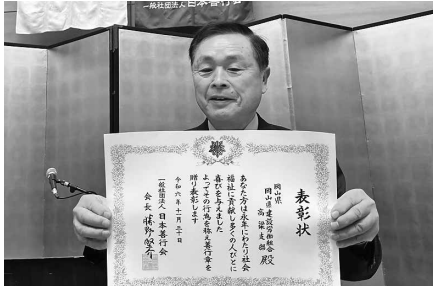 一般社団法人日本善行会
表彰状
岡山県
岡山県建設労働組合
高梁支部 殿
あなた方は永年にわたり社会
福祉に貢献し多くの人びとに
喜びを与えました
よってその行為を称え善行章を
贈り表彰します
令和六年十一月三十日
一般社団法人 日本善行会
会長 勝野堅介